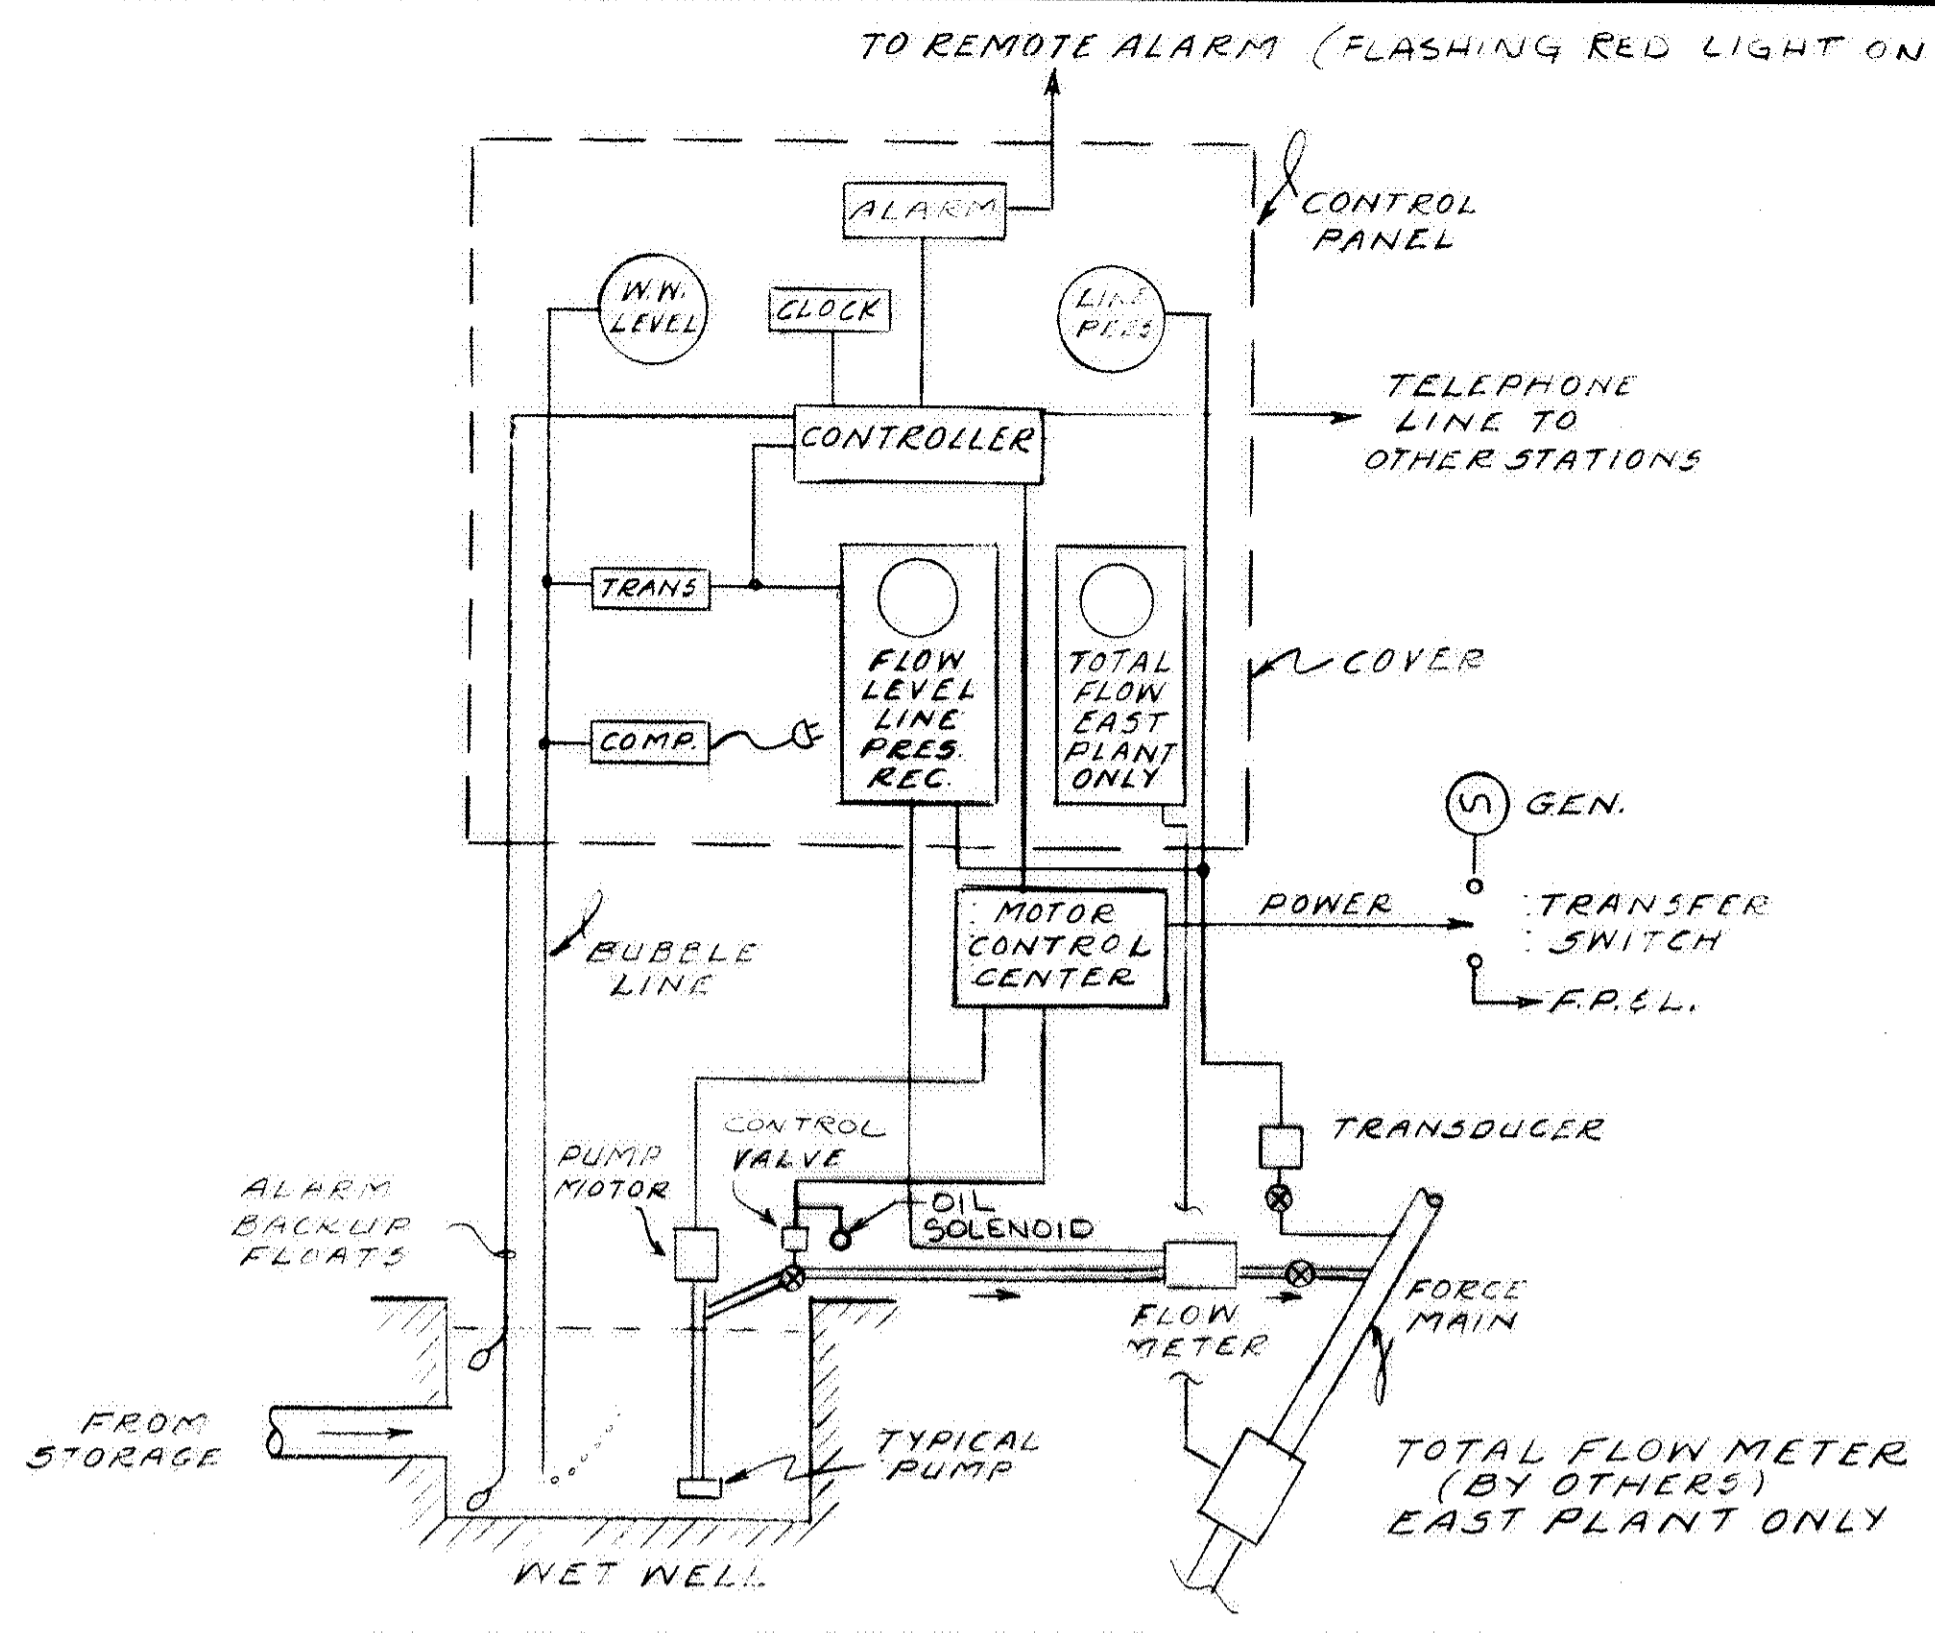 TO REMOTE ALARM (FLASHING RED LIGHT ON
ALARM
CONTROL
PANEL
W.W.
LEVEL
CLOCK
LINE
PRES
TELEPHONE
LINE TO
OTHER STATIONS
CONTROLLER
TRANS
FLOW
LEVEL
LINE
PRES.
REC.
TOTAL
FLOW
EAST
PLANT
ONLY
COVER
COMP.
GEN.
MOTOR
CONTROL
CENTER
POWER
TRANSFER
SWITCH
F.P.&L.
BUBBLE
LINE
CONTROL
VALVE
PUMP
MOTOR
TRANSDUCER
ALARM
BACKUP
FLOATS
OIL
SOLENOID
FLOW
METER
FORCE
MAIN
FROM
STORAGE
TYPICAL
PUMP
TOTAL FLOW METER
(BY OTHERS)
EAST PLANT ONLY
WET WELL